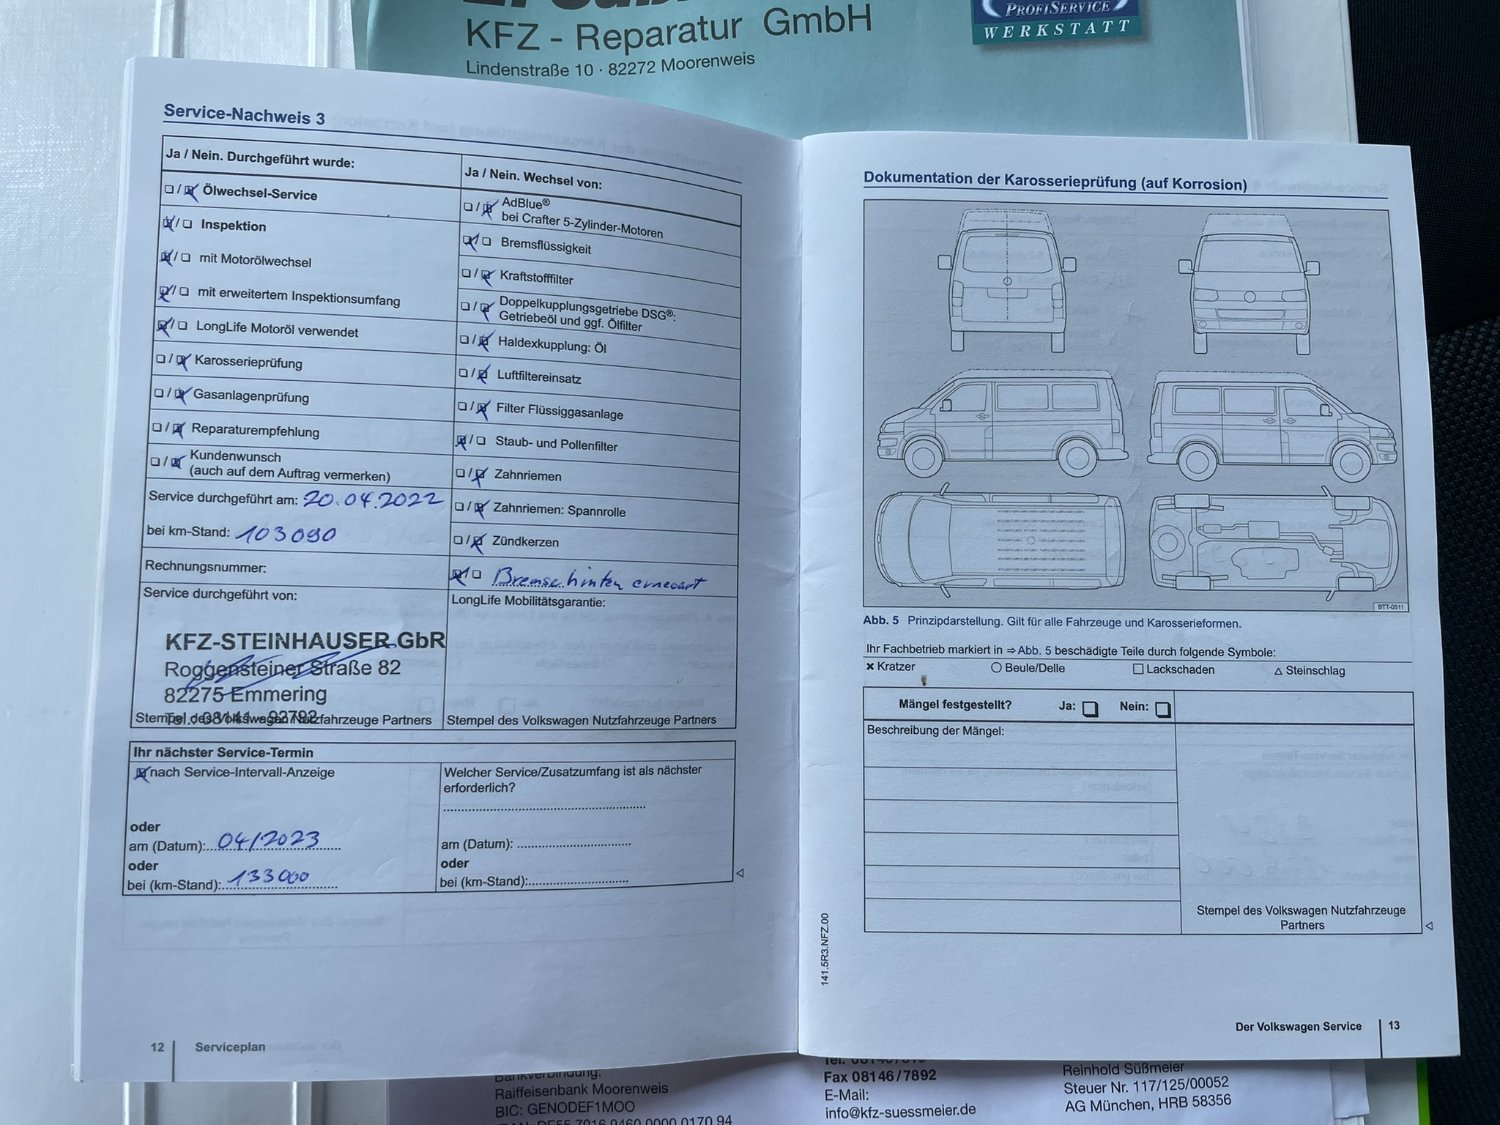 KFZ - Reparatur GmbH
Lindenstraße 10 · 82272 Moorenweis
PROFISERVICE
WERKSTATT
Service-Nachweis 3
Ja / Nein. Durchgeführt wurde:
Ölwechsel-Service
Inspektion
mit Motorölwechsel
mit erweitertem Inspektionsumfang
LongLife Motoröl verwendet
Karosserieprüfung
Gasanlagenprüfung
Reparaturempfehlung
Kundenwunsch
(auch auf dem Auftrag vermerken)
Service durchgeführt am: 20.04.2022
bei km-Stand: 103090
Rechnungsnummer:
Service durchgeführt von:
KFZ-STEINHAUSER GbR
Roggensteiner Straße 82
82275 Emmering
Stempel des Volkswagen Nutzfahrzeuge Partners
Ja / Nein. Wechsel von:
AdBlue®
bei Crafter 5-Zylinder-Motoren
Bremsflüssigkeit
Kraftstofffilter
Doppelkupplungsgetriebe DSG®:
Getriebeöl und ggf. Ölfilter
Haldexkupplung: Öl
Luftfiltereinsatz
Filter Flüssiggasanlage
Staub- und Pollenfilter
Zahnriemen
Zahnriemen: Spannrolle
Zündkerzen
Bremse hinten erneuert
LongLife Mobilitätsgarantie:
Stempel des Volkswagen Nutzfahrzeuge Partners
Ihr nächster Service-Termin
nach Service-Intervall-Anzeige
oder
am (Datum): 04/2023
oder
bei (km-Stand): 133000
Welcher Service/Zusatzumfang ist als nächster
erforderlich?
am (Datum):
oder
bei (km-Stand):
12 Serviceplan
Dokumentation der Karosserieprüfung (auf Korrosion)
BTT-0511
Abb. 5 Prinzipdarstellung. Gilt für alle Fahrzeuge und Karosserieformen.
Ihr Fachbetrieb markiert in ⇒Abb. 5 beschädigte Teile durch folgende Symbole:
✖ Kratzer ○ Beule/Delle □ Lackschaden △ Steinschlag
Mängel festgestellt? Ja: Nein:
Beschreibung der Mängel:
Stempel des Volkswagen Nutzfahrzeuge
Partners
141.5R3.NFZ.00
Der Volkswagen Service 13
Bankverbindung:
Raiffeisenbank Moorenweis
BIC: GENODEF1MOO
Fax 08146/7892
E-Mail:
info@kfz-suessmeier.de
Reinhold Süßmeier
Steuer Nr. 117/125/00052
AG München, HRB 58356